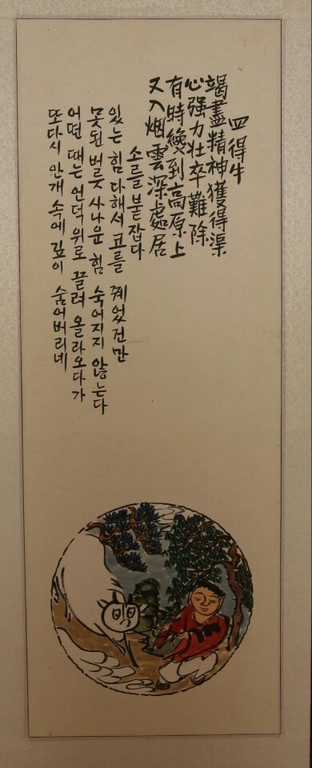 四得牛
竭盡精神獲得渠
心强力壯卒難除
有時纔到高原上
又入烟雲深處居
소를 붙잡다
있는 힘 다해서 고를 꿰었건만
못된 버릇 사나운 힘 숙어지지 않는다
어떤 때는 언덕 위로 끌려 올라오다가
또다시 안개 속에 깊이 숨어버리네